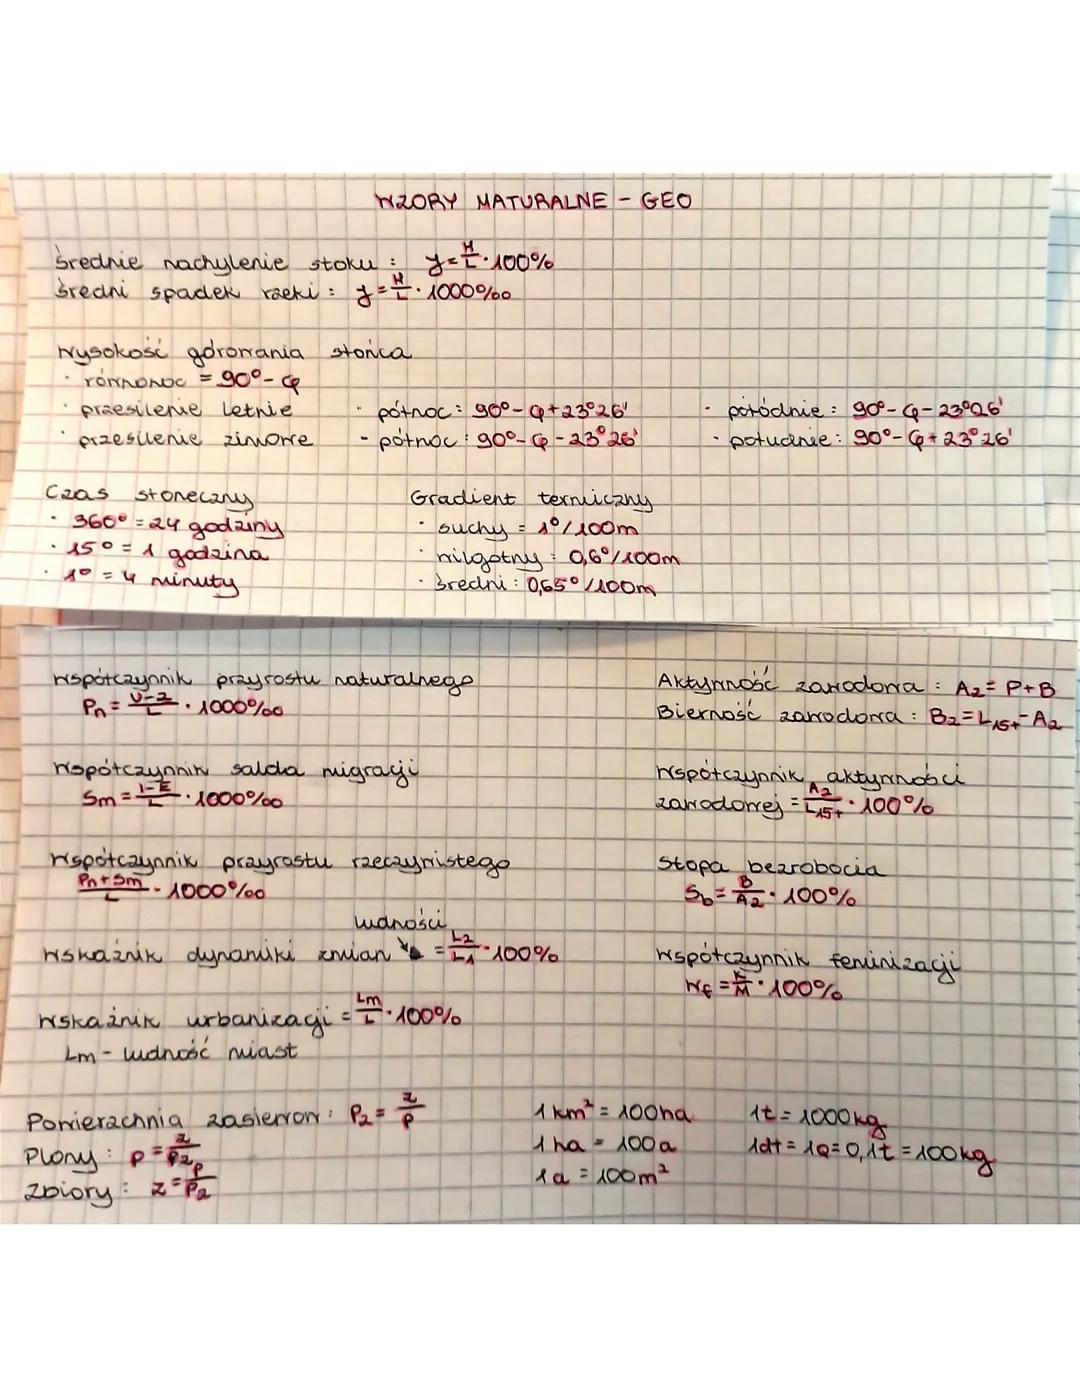 WZORY MATURALNE - GEO
średnie nachylenie stoku : y = H/L · 100%
średni spadek rzeki : y = H/L · 1000‰
wysokość górowania słońca
· równonoc = 90° - φ
· przesilenie letnie · północ : 90° - φ + 23°26' · połódnie : 90° - φ - 23°26'
· przesilenie zimowe - północ : 90° - φ - 23°26' - południe : 90° - φ + 23°26'
Czas słoneczny
· 360° = 24 godziny
· 15° = 1 godzina
· 1° = 4 minuty
Gradient termiczny
· suchy = 1°/100m
· wilgotny : 0,6°/100m
· średni : 0,65°/100m
współczynnik przyrostu naturalnego
Pn = U-Z/L · 1000‰
współczynnik salda migracji
Sm = I-E/L · 1000‰
współczynnik przyrostu rzeczywistego
Pn+Sm/L · 1000‰
ludności
wskaźnik dynamiki zmian = L2/L1 · 100%
wskaźnik urbanizacji = Lm/L · 100%
Lm - ludność miast
Aktywność zawodowa : Az = P+B
Bierność zawodowa : Bz = L15+ - Az
współczynnik aktywności
zawodowej = Az/L15+ · 100%
Stopa bezrobocia
Sb = B/Az · 100%
współczynnik feminizacji
Wf = K/M · 100%
Powierzchnia zasiewów : Pz = z/p
Plony : p = z/Pz
zbiory : z = p/Pz
1 km² = 100ha
1 ha = 100a
1a = 100m²
1t = 1000kg
1dt = 1Q = 0,1t = 100kg